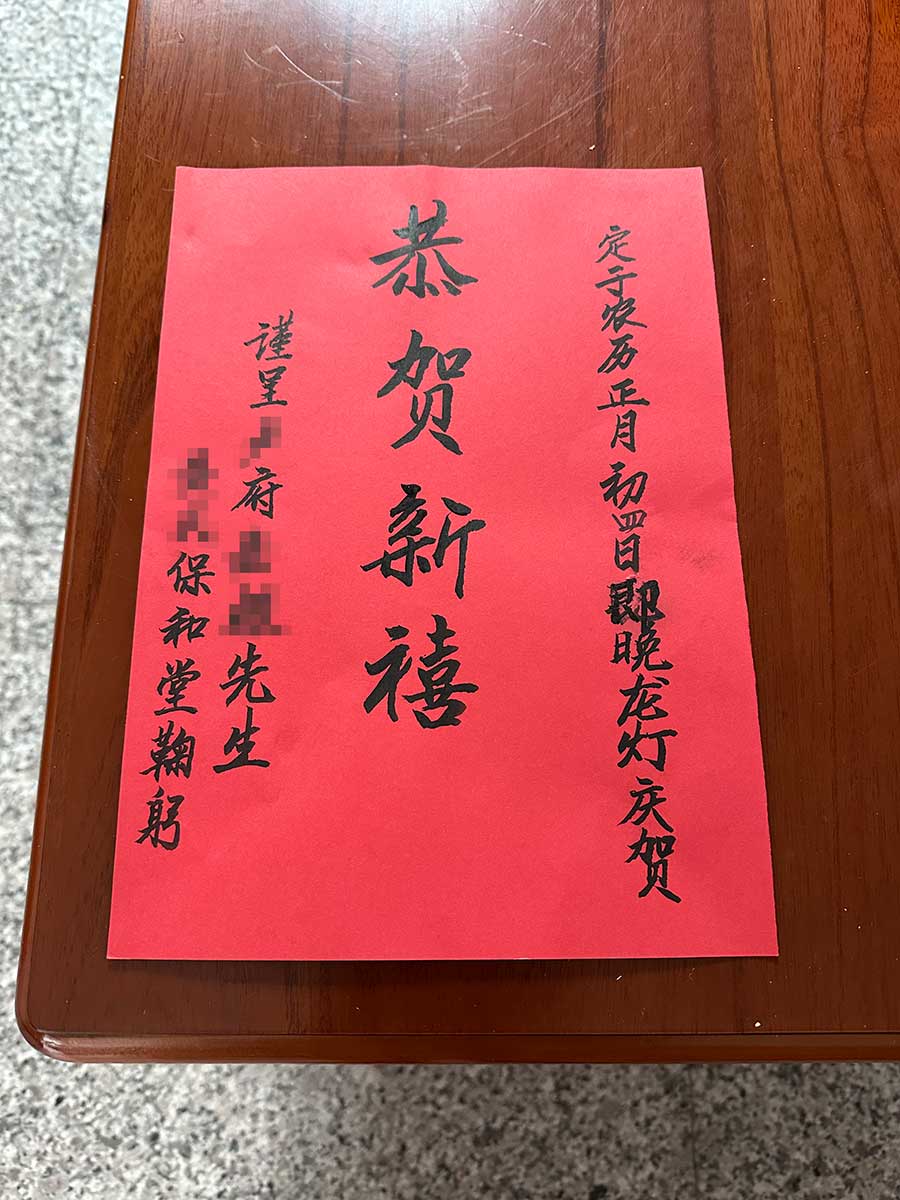 定于农历正月初四日即晚龙灯庆贺
恭贺新禧
谨呈 府 先生
保和堂鞠躬